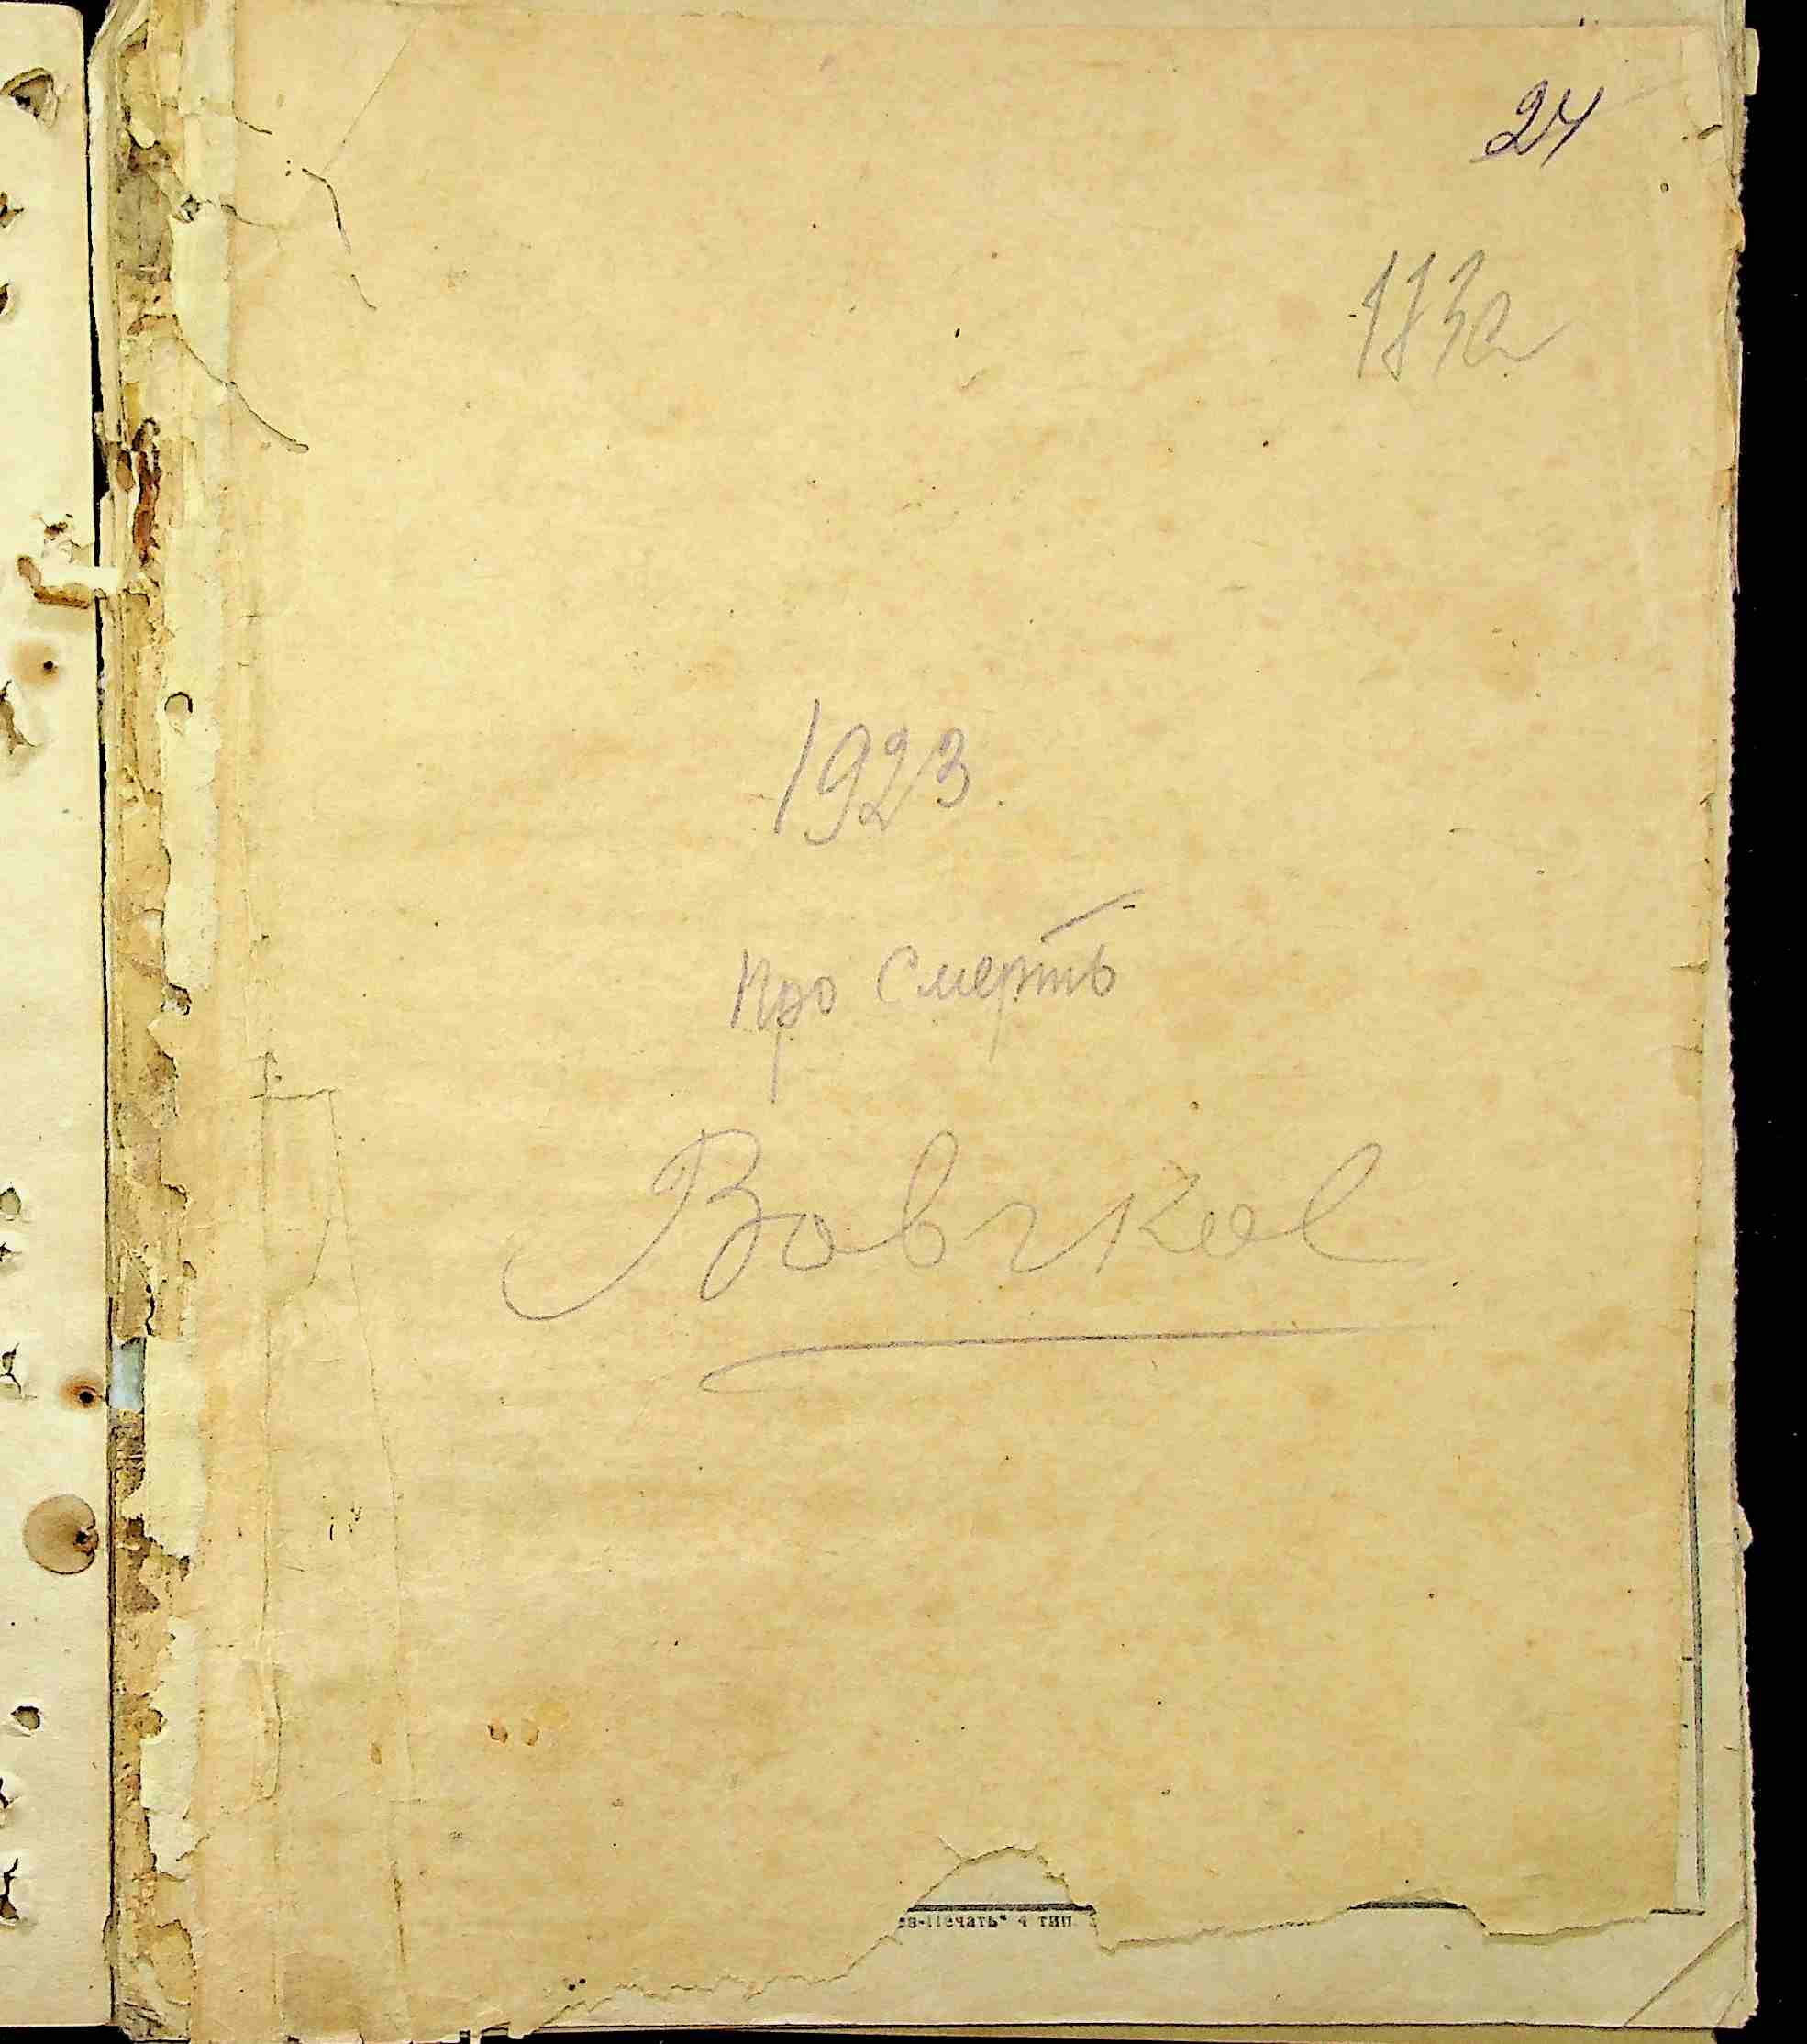 24
183а
1923.
про смерть
Вовчков
ев-Печать" 4 тип.